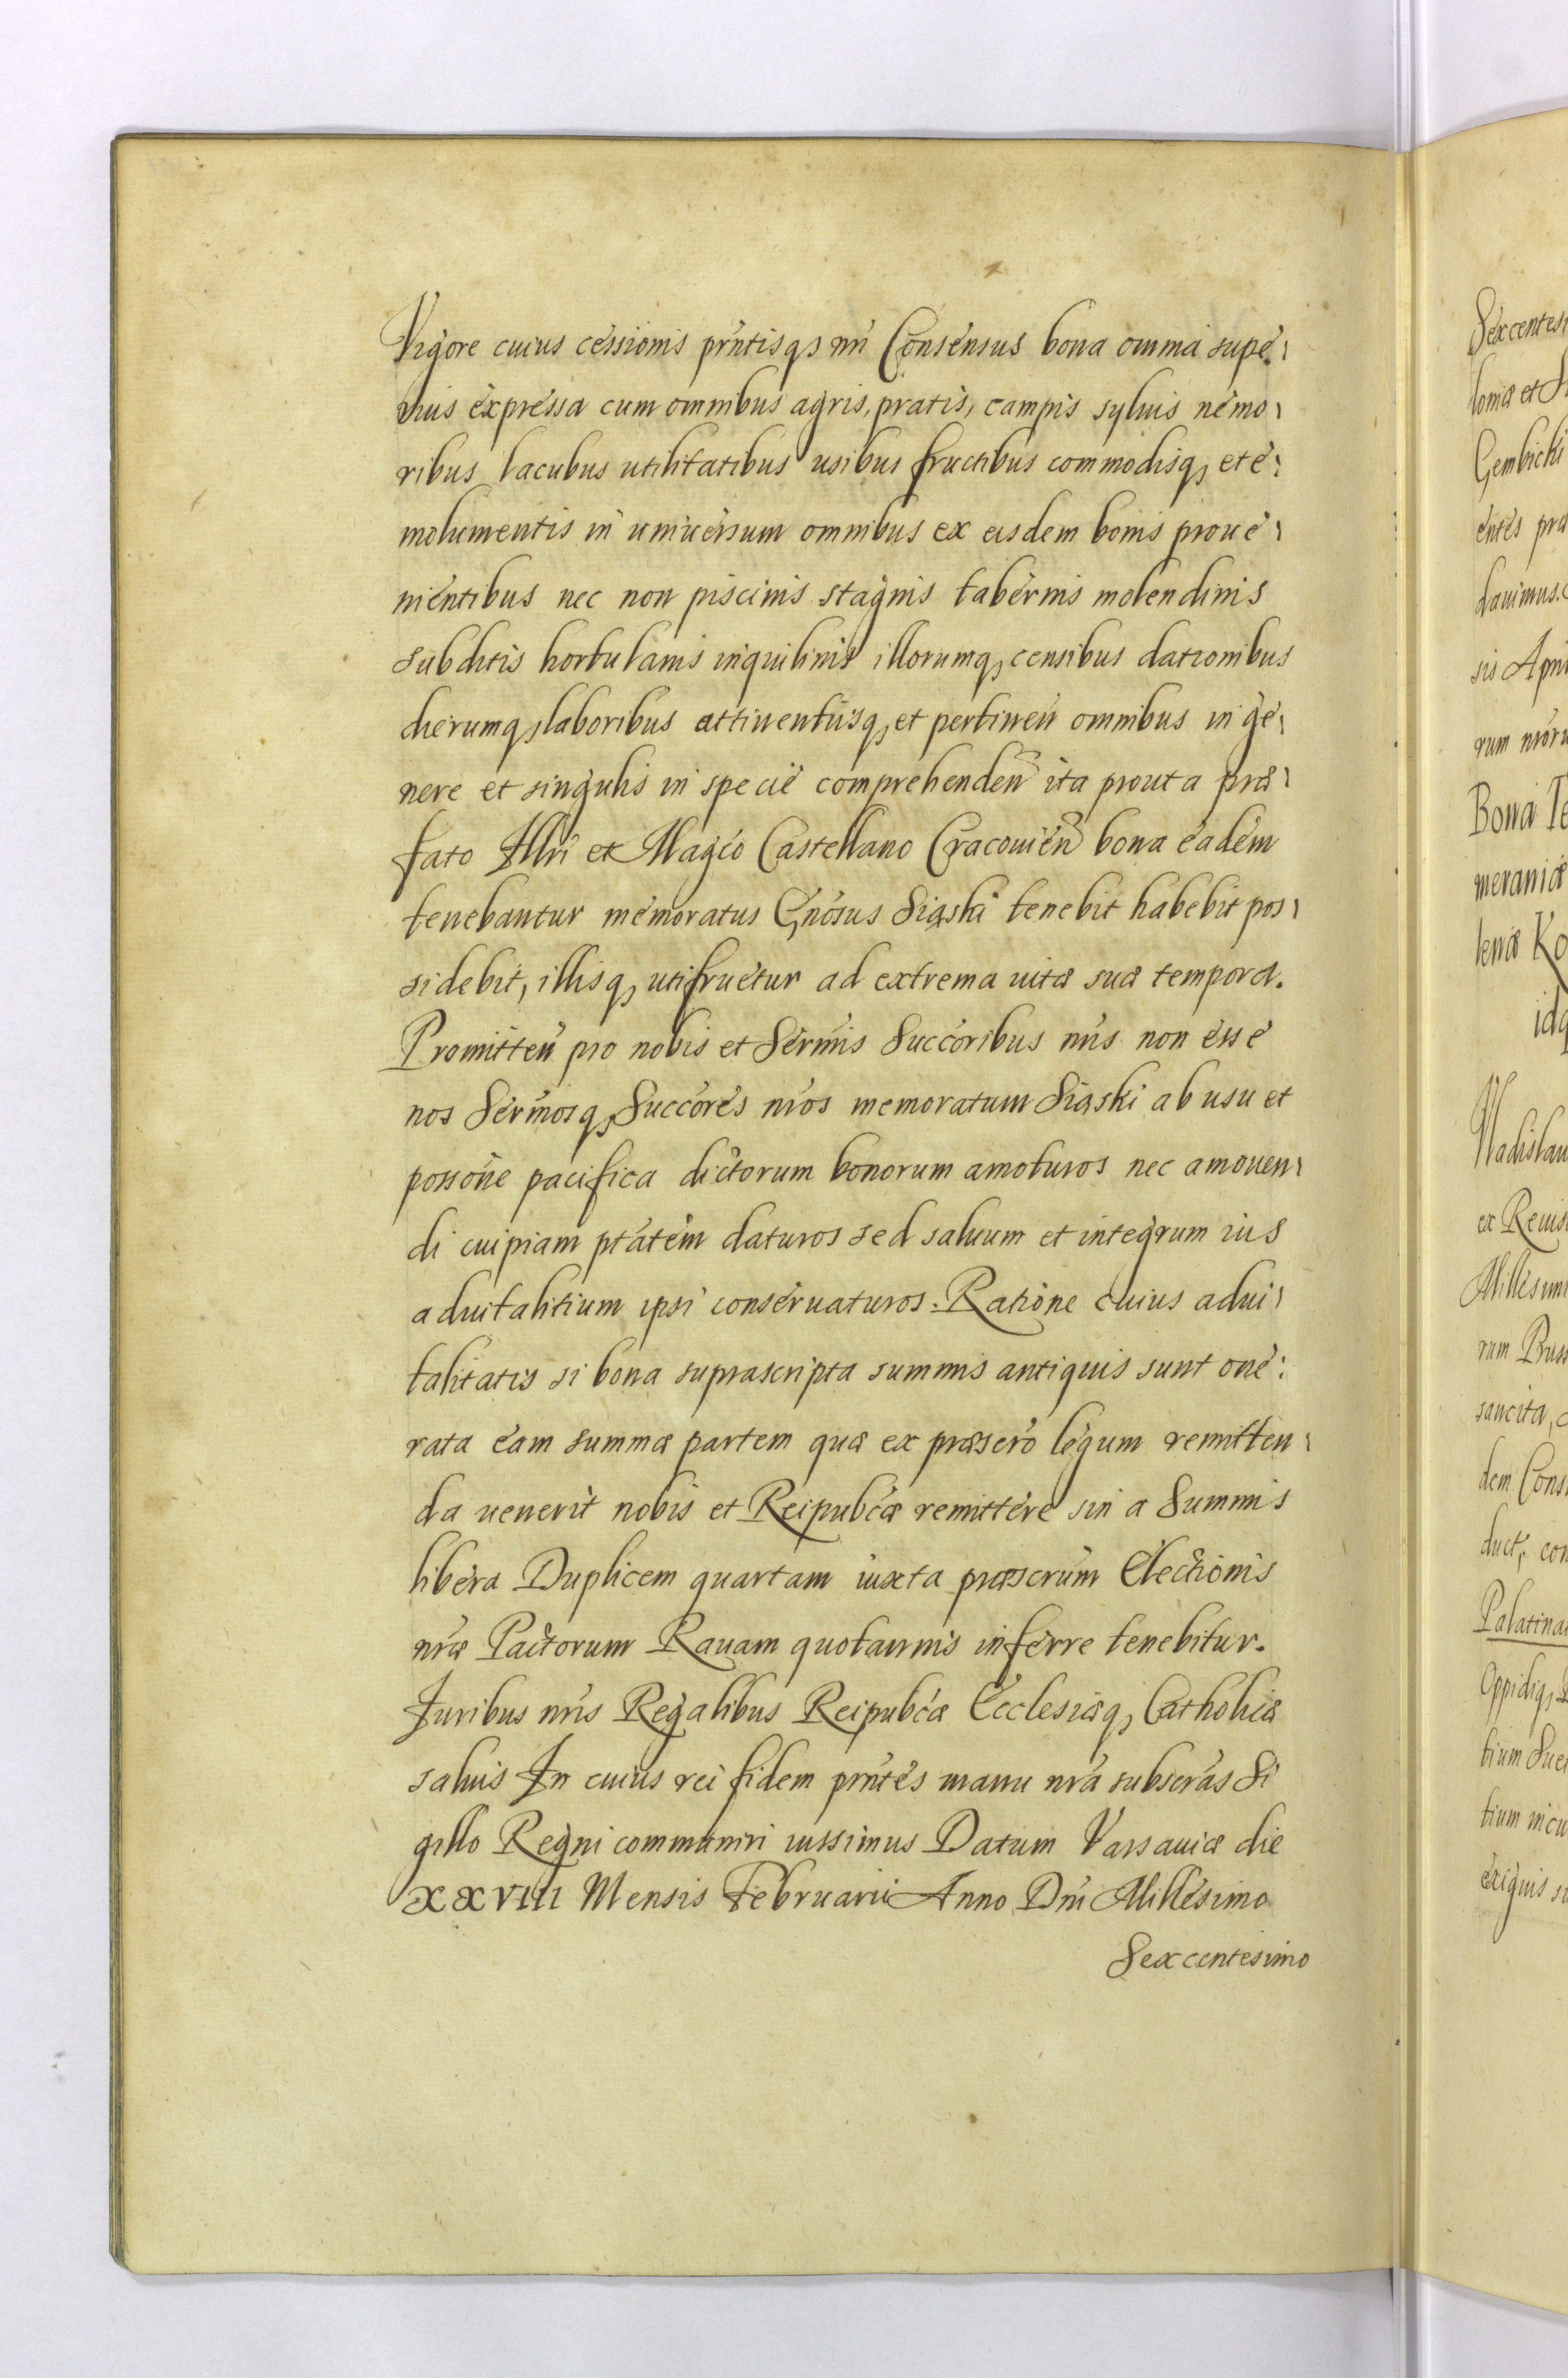 Vigore cuius cessionis prñtisq, nri Consensus bona omnia supe:
rius expressa cum omnibus agris, pratis, campis syluis nemo:
ribus lacubus utilitatibus usibus fructibus commodisq, et e:
molumentis in uniuersum omnibus ex eisdem bonis proue:
nientibus nec non piscinis stagnis tabernis molendinis
subditis hortulanis inquilinis illorumq, censibus dationibus
dierumq, laboribus attinentiisq, et pertineñ omnibus in ge:
nere et singulis in specie comprehendeñ ita prout a præ:
fato Illri et Magco Castellano Cracouieñ bona eadem
tenebantur memoratus Gnosus Siąski tenebit habebit pos:
sidebit, illisq, utifruetur ad extrema uitæ suæ tempora.
Promitteñ pro nobis et Sermis Succoribus nris non esse
nos Sermosq, Succores nros memoratum Siąski ab usu et
possone pacifica dictorum bonorum amoturos nec amouen:
di cuipiam ptatem daturos sed saluum et integrum ius
aduitalitium ipsi conseruaturos. Ratione cuius adui:
talitatis si bona suprascripta summis antiquis sunt one:
rata eam summæ partem quæ ex præscro legum remitten:
da uenerit nobis et Reipubcæ remittere sin a Summis
libera Duplicem quartam iuxta præscrum Electionis
nræ Pactorum Rauam quotannis inferre tenebitur.
Iuribus nris Regalibus Reipubcæ Ecclesiæq, Catholicæ
saluis In cuius rei fidem prñtes manu nra subscras Si
gillo Regni communiri iussimus Datum Varsauiæ die
XXVIII Mensis Februarii Anno Dni Millesimo
Sexcentesimo
Sexcentesi
Gembicki
entes præ
dauimus.
Bona Te
meraniæ
Ko
Vladislau
ex Reuis
Millesimi
rum Pruss
sancita,
dem Cons
duct, con
Palatinat
Oppidiq,
tium Suec
exiguis su